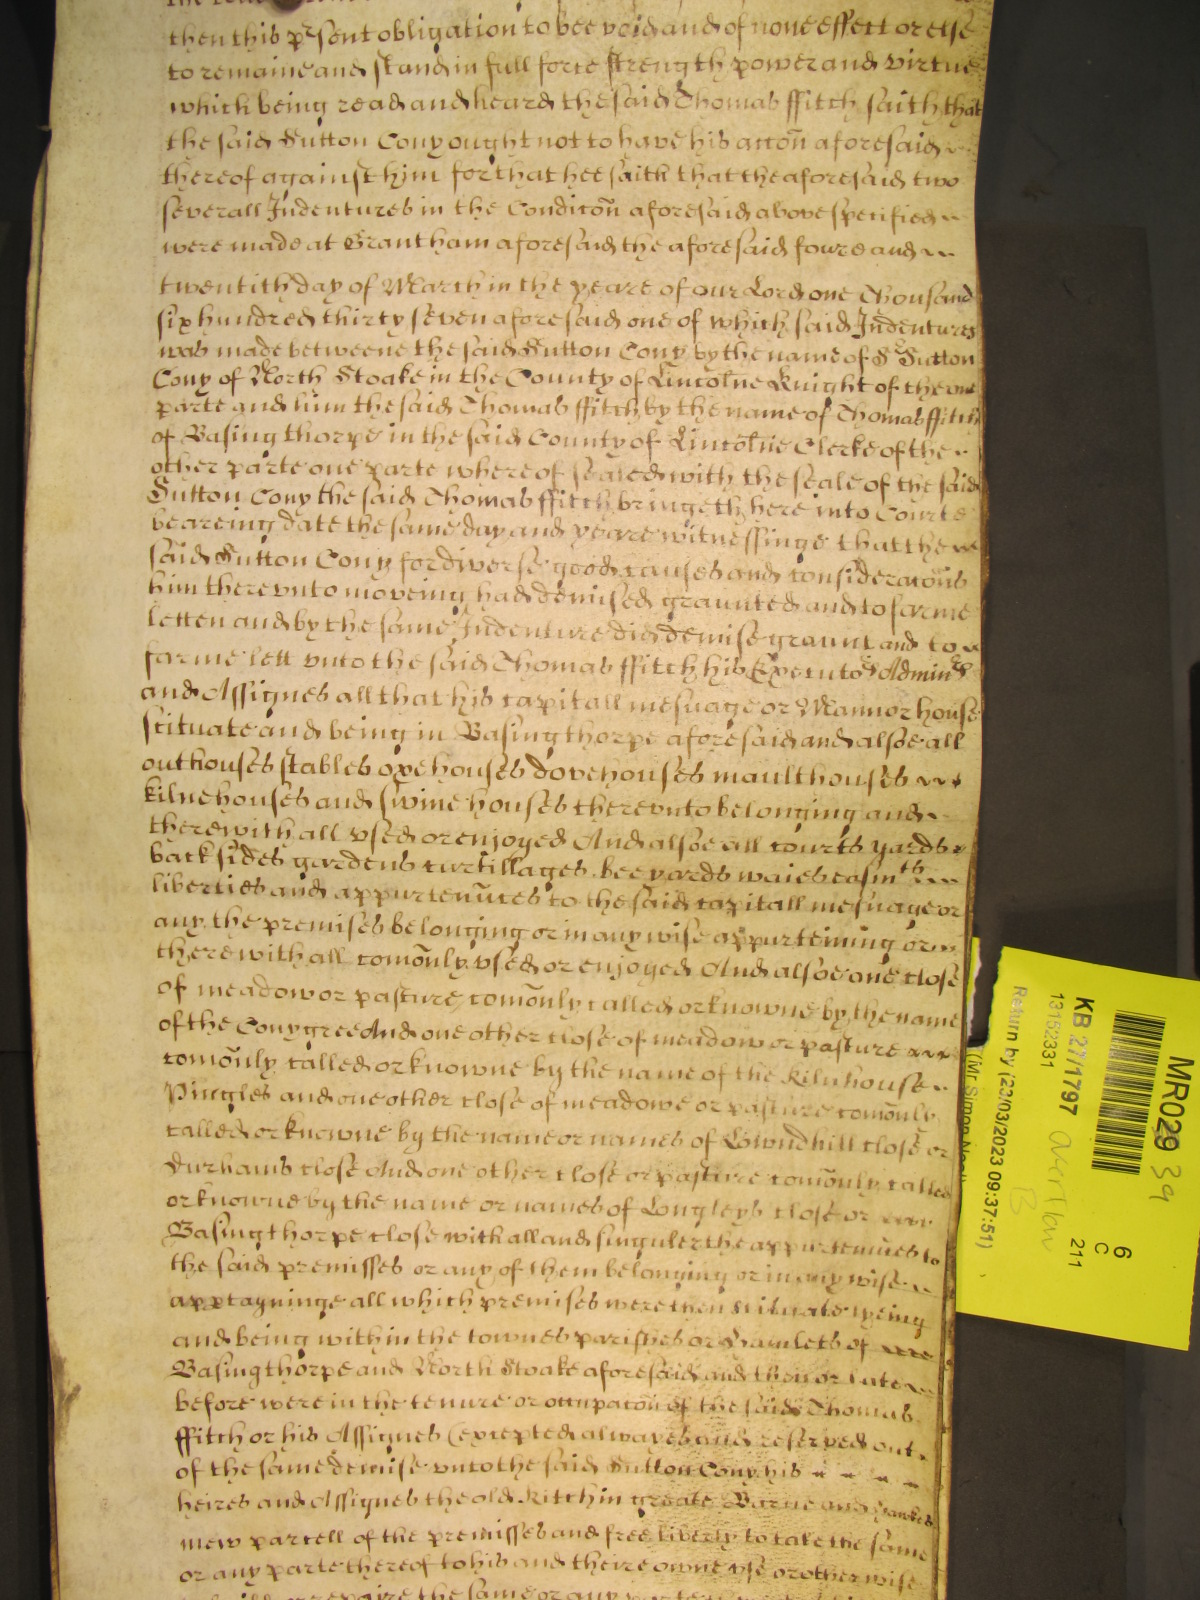 then this pr̃sent obligation to bee void and of none effect or else
to remaine and stand in full force strength power and virtue
which being read and heard the said Thomas ffitch saith that
the said Sutton Cony ought not to have his accoñ aforesaid
thereof against him for that hee saith that the aforesaid two
severall Indentures in the Condicoñ aforesaid above specified
were made at Grantham aforesaid the aforesaid foure and
twentith day of March in the yeare of our Lord one Thousand
six hundred thirty seven aforesaid one of which said Indentures
was made betweene the said Sutton Cony by the name of Sr Sutton
Cony of North Stoake in the County of Lincolne Knight of the one
parte and him the said Thomas ffitch by the name of Thomas ffitch
of Basingthorpe in the said County of Lincolne Clerke of the
other parte one parte whereof sealed with the seale of the said
Sutton Cony the said Thomas ffitch bringeth here into Courte
beareing date the same day and yeare witnessinge that the
said Sutton Cony for diverse good causes and consideracoñs
him therevnto moveing had demised graunted and to farme
letten and by the same Indenture did demise graunt and to
farme lett vnto the said Thomas ffitch his Executors Admin
and Assignes all that his capitall mesuage or Mannor house
scituate and being in Basingthorpe aforesaid and alsoe all
outhouses stables oxehouses dovehouses maulthouses
kilnehouses and swinehouses therevnto belonging and
therewithall vsed or enjoyed And alsoe all courts yards
backsides gardens curtillages bee yards waies easmts
liberties and appurteñces to the said capitall mesuage or
any the premises belonging or in any wise appurteining or
therewithall comoñly vsed or enjoyed And alsoe one close
of meadow or pasture comoñly called or knowne by the name
of the Conygree And one other close of meadow or pasture
comoñly called or knowne by the name of the Kilnhouse
Pingles and one other close of meadowe or pasture comoñly
called or knowne by the name or names of Lowndhill close or
Durhams close And one other close or pasture comoñly called
or knowne by the name or names of Longleys close or
Basingthorpe close with all and singuler the appurteñces to
the said premisses or any of them belonging or in any wise
apptayninge all which premises were then scituate lyeing
and being within the townes parishes or Hamlets of
Basingthorpe and North Stoake aforesaid and then or late
before were in the tenure or occupacoñ of the said Thomas
ffitch or his Assignes (excepted alwayes and reserved out
of the same demise vnto the said Sutton Cony his
heires and Assignes the old Kitchin greate Barne and
mew parcell of the premisses and free liberty to take the same
or any parte thereof to his and theire owne vse or otherwise
repaire the same or any
MR029 39
6
C
211
KB 27/1797
13152331
Return by (23/03/2023 09:37:51)
(Mr Simon